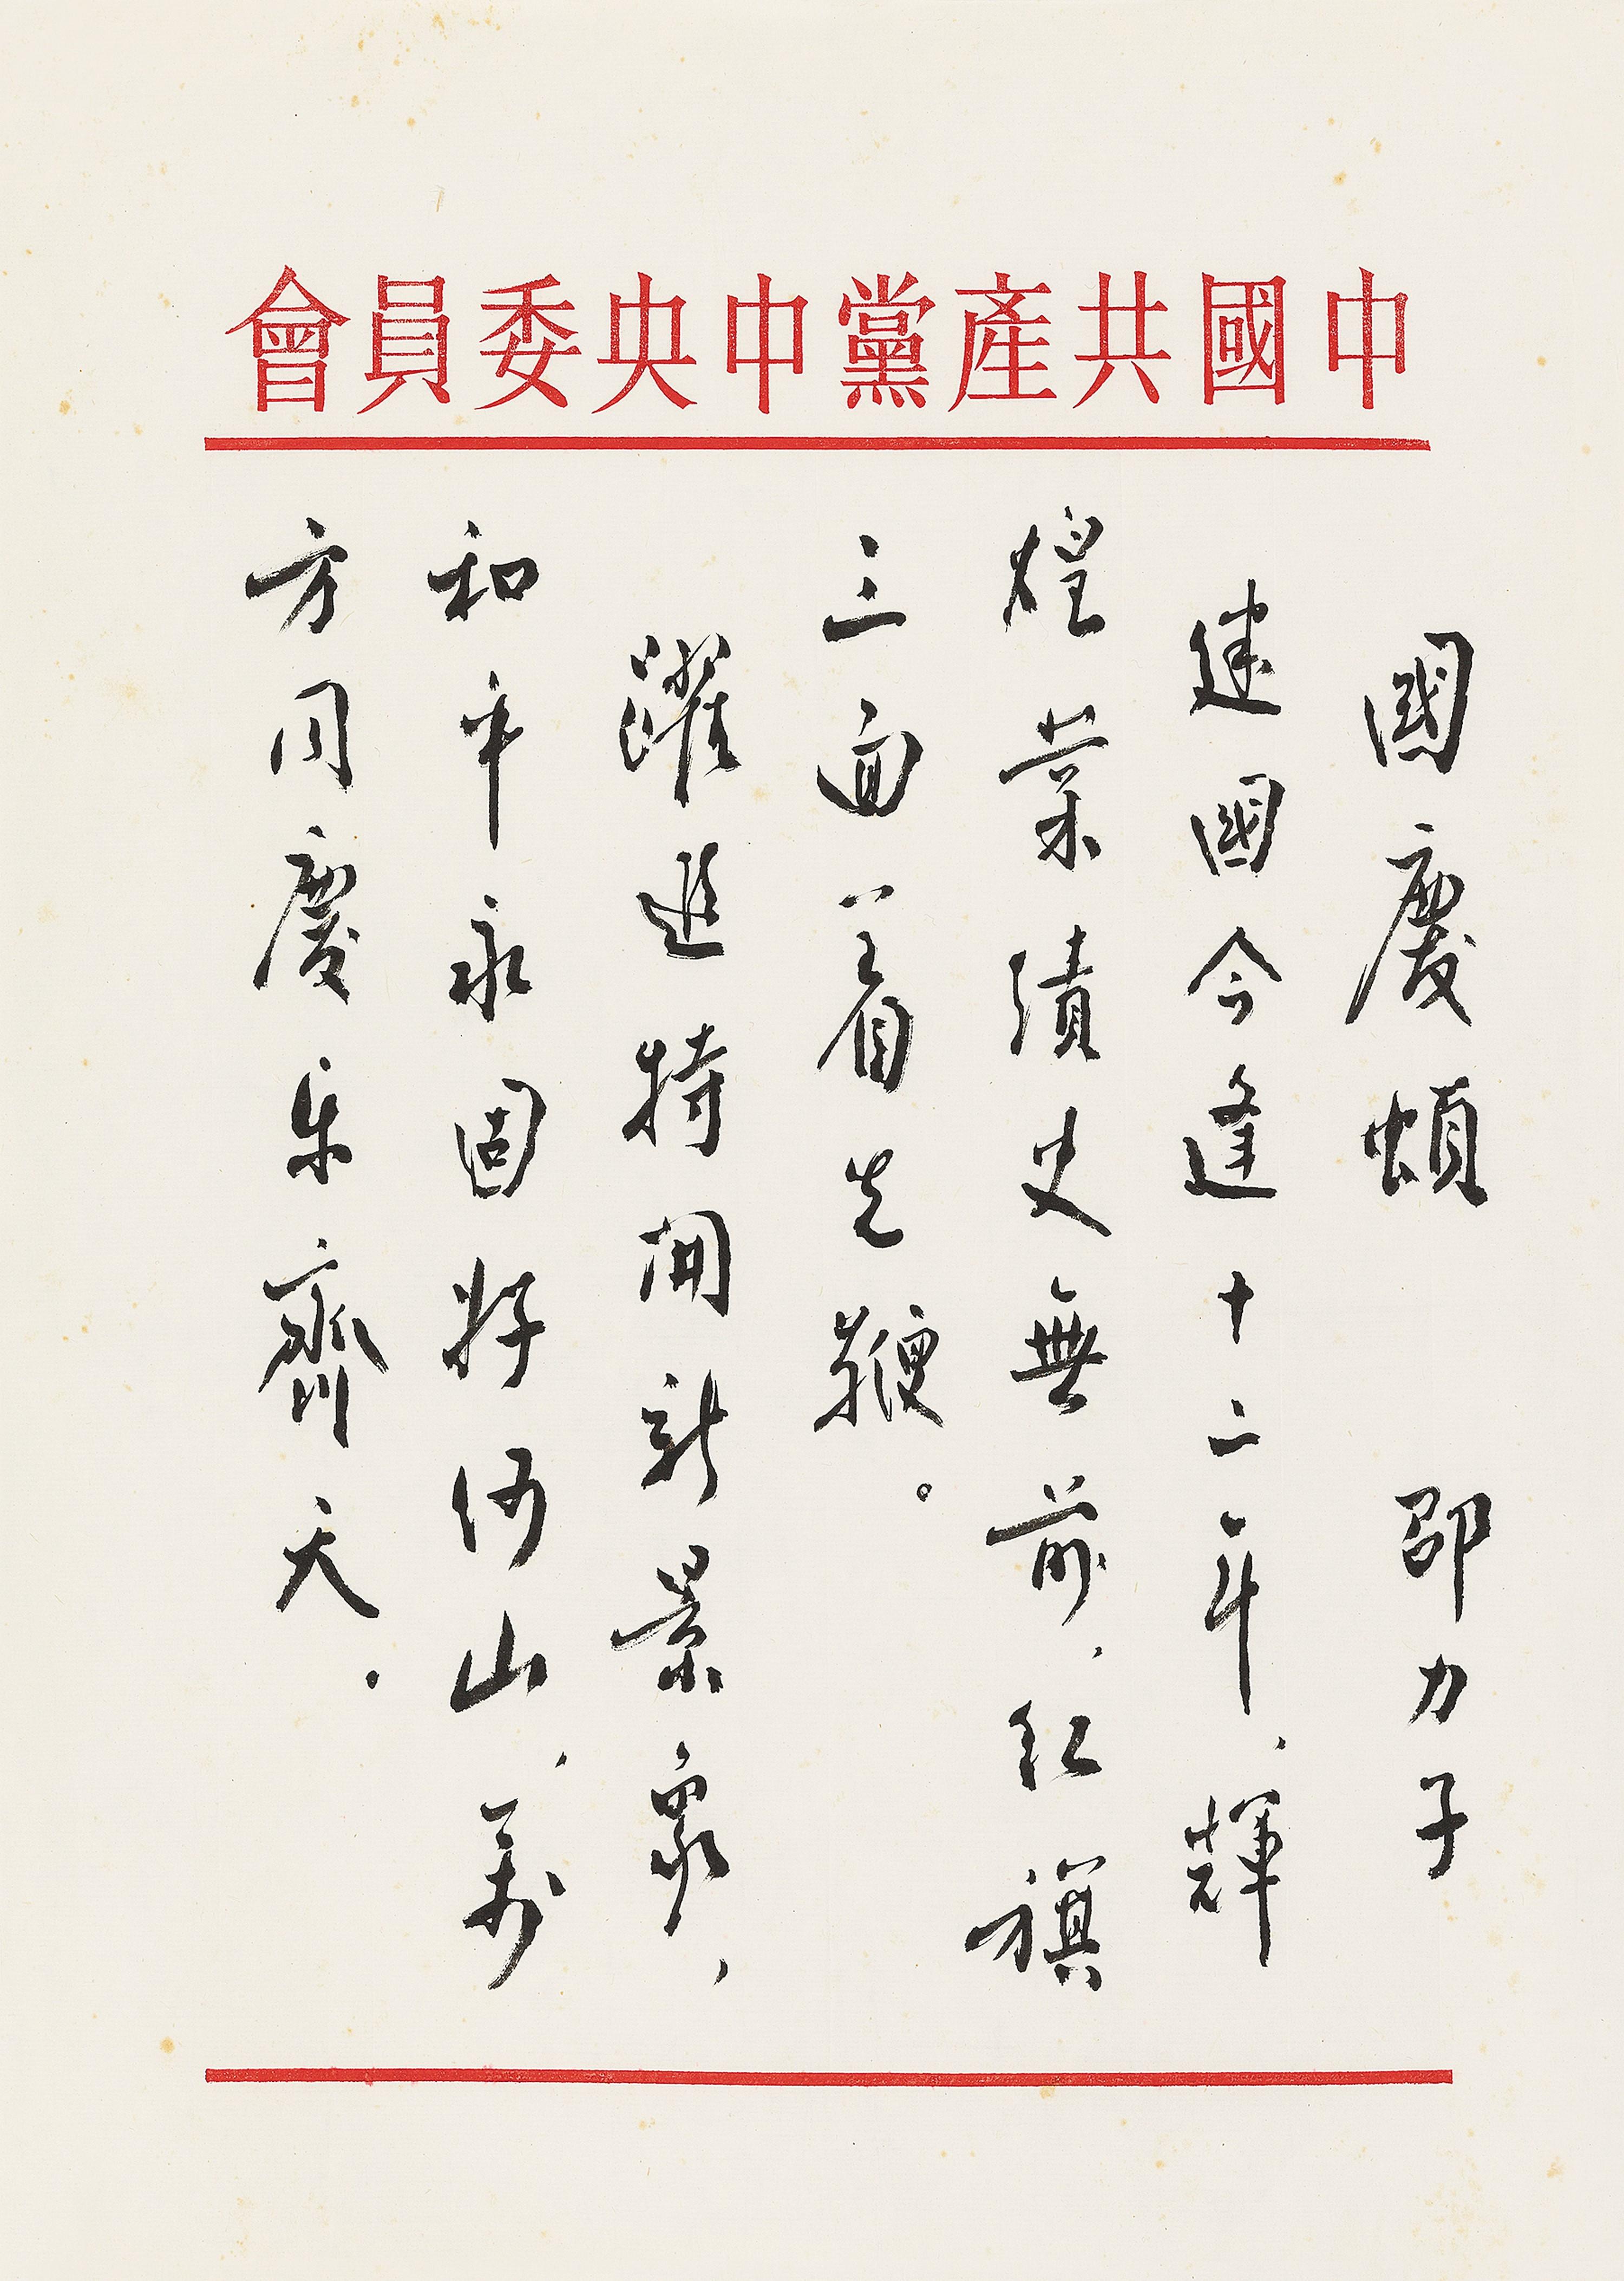 中國共產黨中央委員會
國慶頌 邵力子
建國今逢十二年、輝
煌業績史無前、紅旗
三面着先鞭。
躍進特開新景象、
和平永固好河山、萬
方同慶乐齊天.